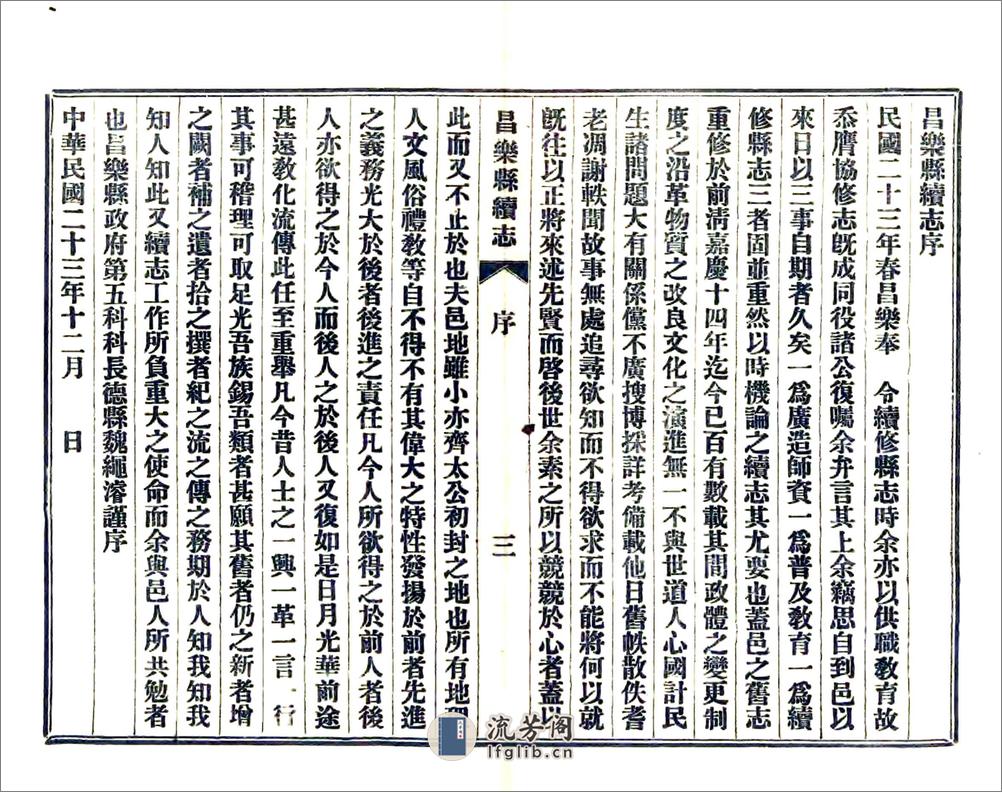 昌樂縣續志序
民國二十三年春昌樂奉　令續修縣志時余亦以供職教育故
忝膺協修志既成同役諸公復囑余弁言其上余竊思自到邑以
來日以三事自期者久矣一爲廣造師資一爲普及教育一爲續
修縣志三者固並重然以時機論之續志其尤要也蓋邑之舊志
重修於前清嘉慶十四年迄今已百有數載其間政體之變更制
度之沿革物質之改良文化之演進無一不與世道人心國計民
生諸問題大有關係儻不廣搜博採詳考備載他日舊帙散佚耆
老凋謝軼聞故事無處追尋欲知而不得欲求而不能將何以就
既往以正將來述先賢而啓後世余素之所以競競於心者蓋以
昌樂縣續志　序　三
此而又不止於也夫邑地雖小亦齊太公初封之地也所有地理
人文風俗禮教等自不得不有其偉大之特性發揚於前者先進
之義務光大於後者後進之責任凡今人所欲得之於前人者後
人亦欲得之於今人而後人之於後人又復如是日月光華前途
甚遠教化流傳此任至重舉凡今昔人士之一興一革一言一行
其事可稽理可取足光吾族錫吾類者甚願其舊者仍之新者增
之闕者補之遺者拾之撰者紀之流之傳之務期於人知我知我
知人知此又續志工作所負重大之使命而余與邑人所共勉者
也昌樂縣政府第五科科長德縣魏繩濬謹序
中華民國二十三年十二月　日
流芳阁
lfglib.cn